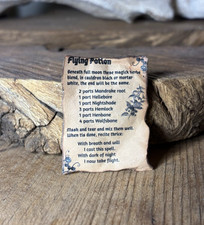 Flying Potion
Beneath full moon these magick herbs
blend, in cauldron black or mortar
white, the end will be the same:
2 parts Mandrake root
1 part Hellebore
1 part Nightshade
3 parts Hemlock
1 part Henbane
4 parts Wolfsbane
Mash and tear and mix them well
When tis done, recite thrice:
With breath and will
I cast this spell.
With dark of night
I now take flight.